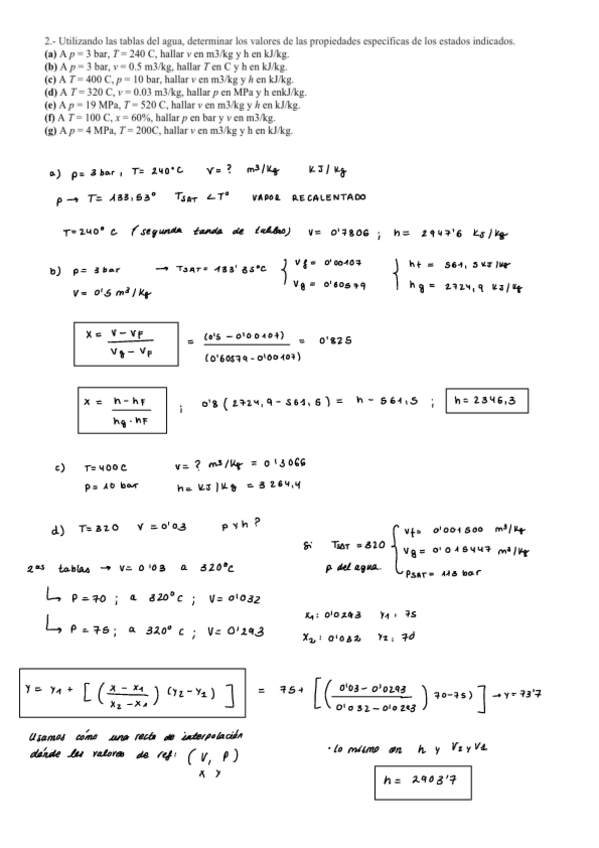 2.- Utilizando las tablas del agua, determinar los valores de las propiedades específicas de los estados indicados.
(a) A p = 3 bar, T = 240 C, hallar v en m3/kg y h en kJ/kg.
(b) A p = 3 bar, v = 0.5 m3/kg, hallar T en C y h en kJ/kg.
(c) A T = 400 C, p = 10 bar, hallar v en m3/kg y h en kJ/kg.
(d) A T = 320 C, v = 0.03 m3/kg, hallar p en MPa y h enkJ/kg.
(e) A p = 19 MPa, T = 520 C, hallar v en m3/kg y h en kJ/kg.
(f) A T = 100 C, x = 60%, hallar p en bar y v en m3/kg.
(g) A p = 4 MPa, T = 200C, hallar v en m3/kg y h en kJ/kg.
a) p= 3 bar, T= 240°C V= ? m3/kg KJ/kg
p → T= 133,53° TSAT < T° VAPOR RECALENTADO
T=240° C (segunda tanda de tablas) V= 0'7806 ; h= 2947'6 KJ/kg
b) p= 3 bar → TSAT= 133'35°C Vf= 0'00107 ht= 561,5 KJ/kg
V= 0'5 m3/kg Vg= 0'60579 hg= 2724,9 KJ/kg
x = V-VF / Vg-VF = (0'5 - 0'00107) / (0'60579-0'00107) = 0'825
x = h-hF / hg-hF ; 0'8 (2724,9-561,5) = h - 561,5 ; h= 2346,3
c) T=400C V= ? m3/kg = 0'3066
P= 10 bar h= KJ/kg = 3264,4
d) T=320 V=0'03 p y h?
Si TSAT = 320 Vf= 0'001500 m3/kg
Vg= 0'015447 m3/kg
p del agua. PSAT= 113 bar
2as tablas → V= 0'03 a 320°C
↳ P=70 ; a 320°C ; V= 0'032
↳ P=75 ; a 320°C ; V= 0'293
x1: 0'0293 y1: 75
x2: 0'032 y2: 70
y = y1 + [(x-x1 / x2-x1) (y2-y1)] = 75+ [(0'03-0'0293 / 0'032-0'0293) 70-75)] → y= 73'7
Usamos cómo una recta de interpolación
dónde los valores de ref: (V, P)
x y
· lo mismo en h y V2 y V1
h= 2903'7